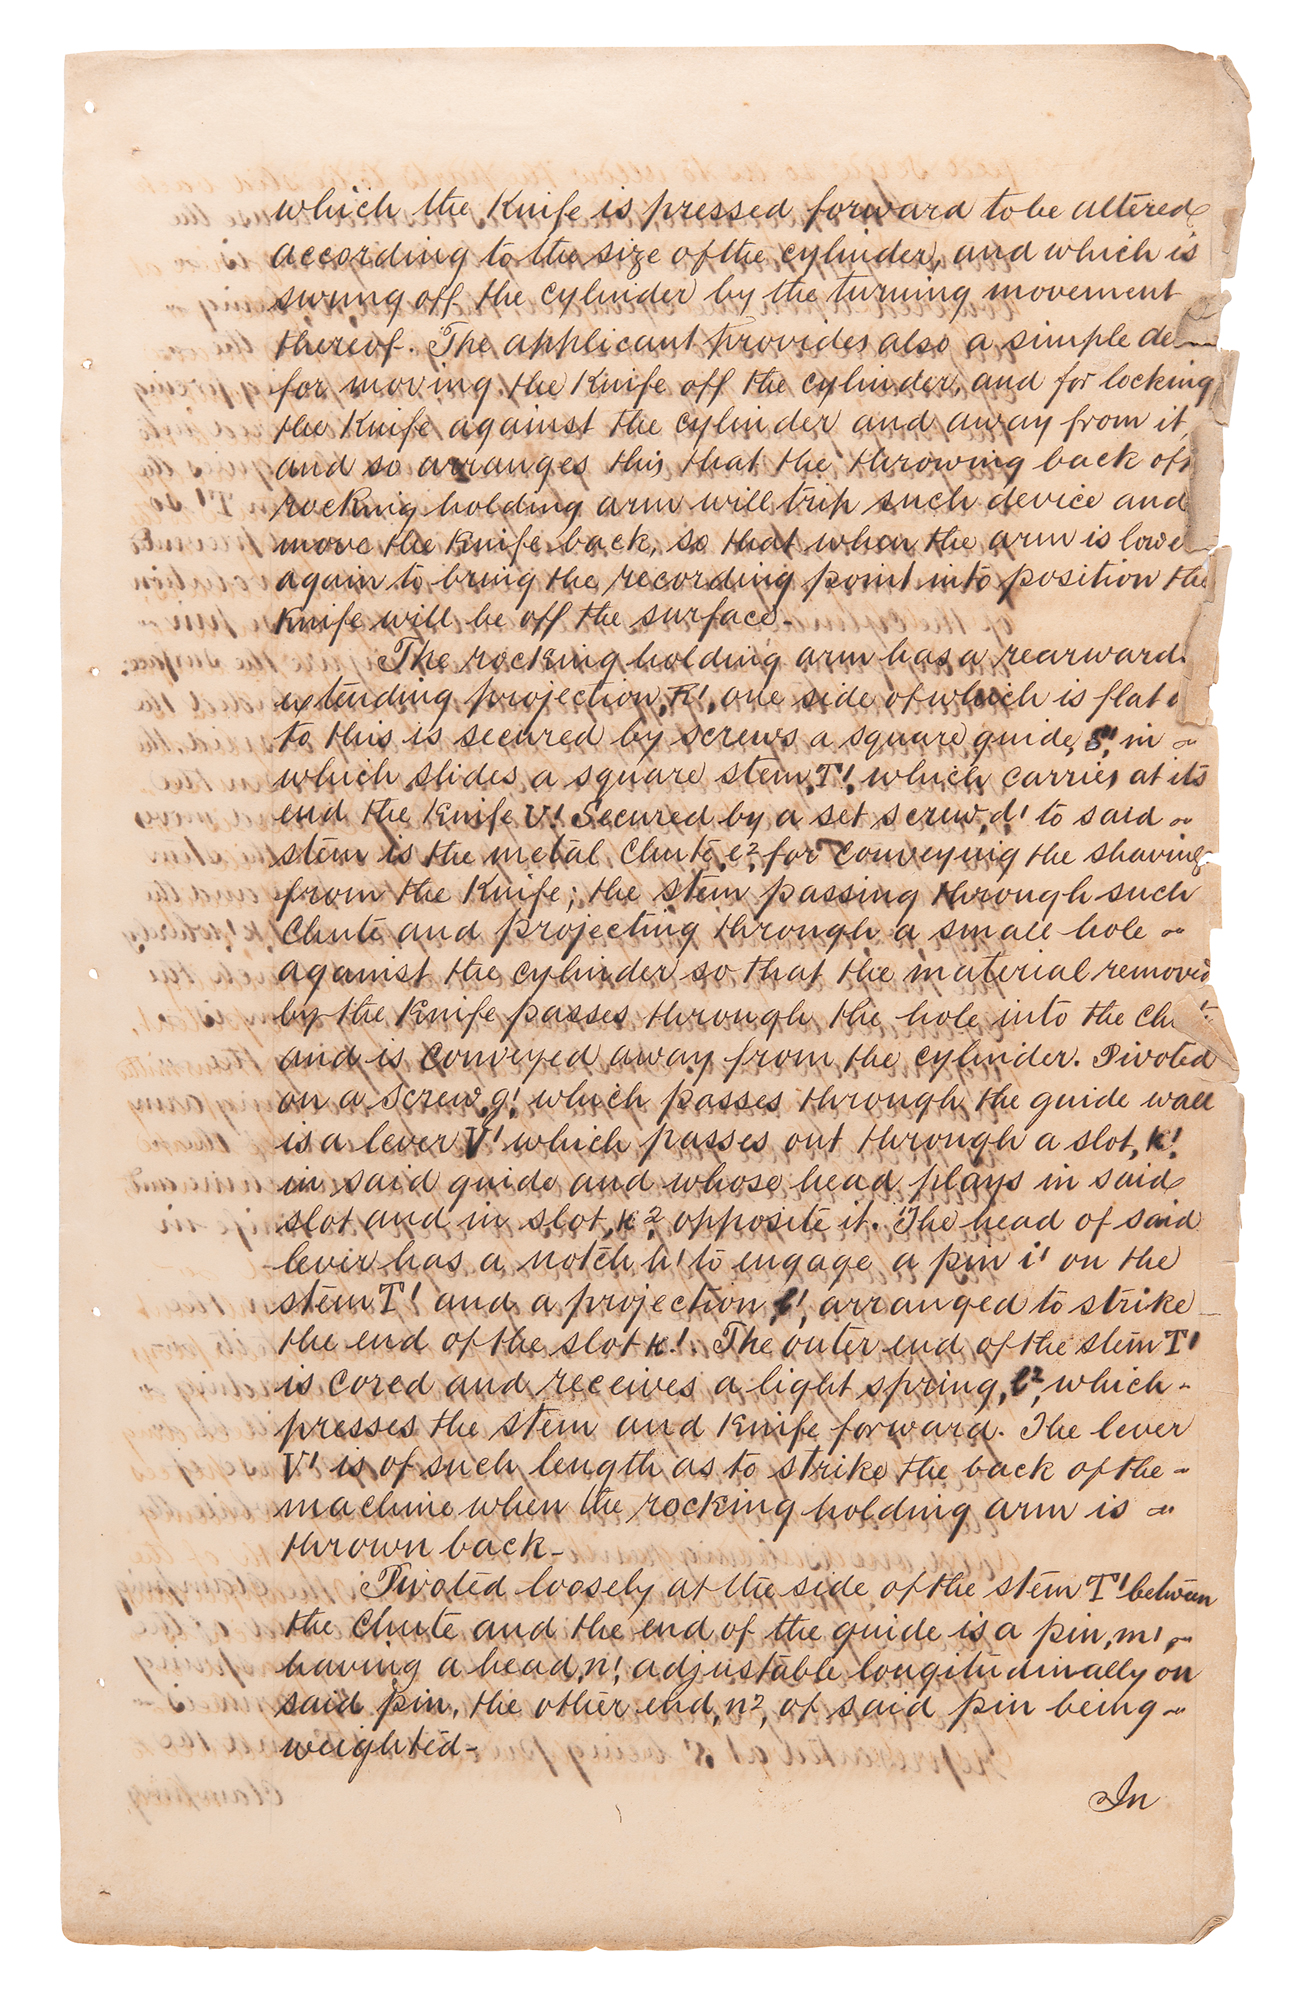 which the Knife is pressed forward to be altered
according to the size of the cylinder, and which is
swung off the cylinder by the turning movement
thereof. The applicant provides also a simple de
for moving the Knife off the cylinder, and for locking
the Knife against the cylinder and away from it,
and so arranges this, that the throwing back of
rocking holding arm will trip such device and
move the Knife back, so that when the arm is lowe
again to bring the recording point into position the
Knife will be off the surface.
The rocking holding arm has a rearward
extending projection, R', one side of which is flat
to this is secured by screws a square guide, S', in
which slides a square stem, T', which carries at its
end the Knife V'. Secured by a set screw, d' to said
stem is the metal Chute, e², for conveying the shavings
from the Knife; the stem passing through such
Chute and projecting through a small hole
against the cylinder so that the material removed
by the Knife passes through the hole into the Chu
and is conveyed away from the cylinder. Pivoted
on a Screw, g', which passes through the guide wall
is a lever V' which passes out through a slot, k'
in said guide and whose head plays in said
slot and in slot, k², opposite it. The head of said
lever has a notch h' to engage a pin i' on the
stem T' and a projection, l', arranged to strike
the end of the slot k'. The outer end of the stem T'
is cored and receives a light spring, l², which
presses the stem and Knife forward. The lever
V' is of such length as to strike the back of the
machine when the rocking holding arm is
thrown back.
Pivoted loosely at the side of the stem T' between
the Chute and the end of the guide is a pin, m',
having a head, n', adjustable longitudinally on
said pin, the other end, n², of said pin being
weighted.
In